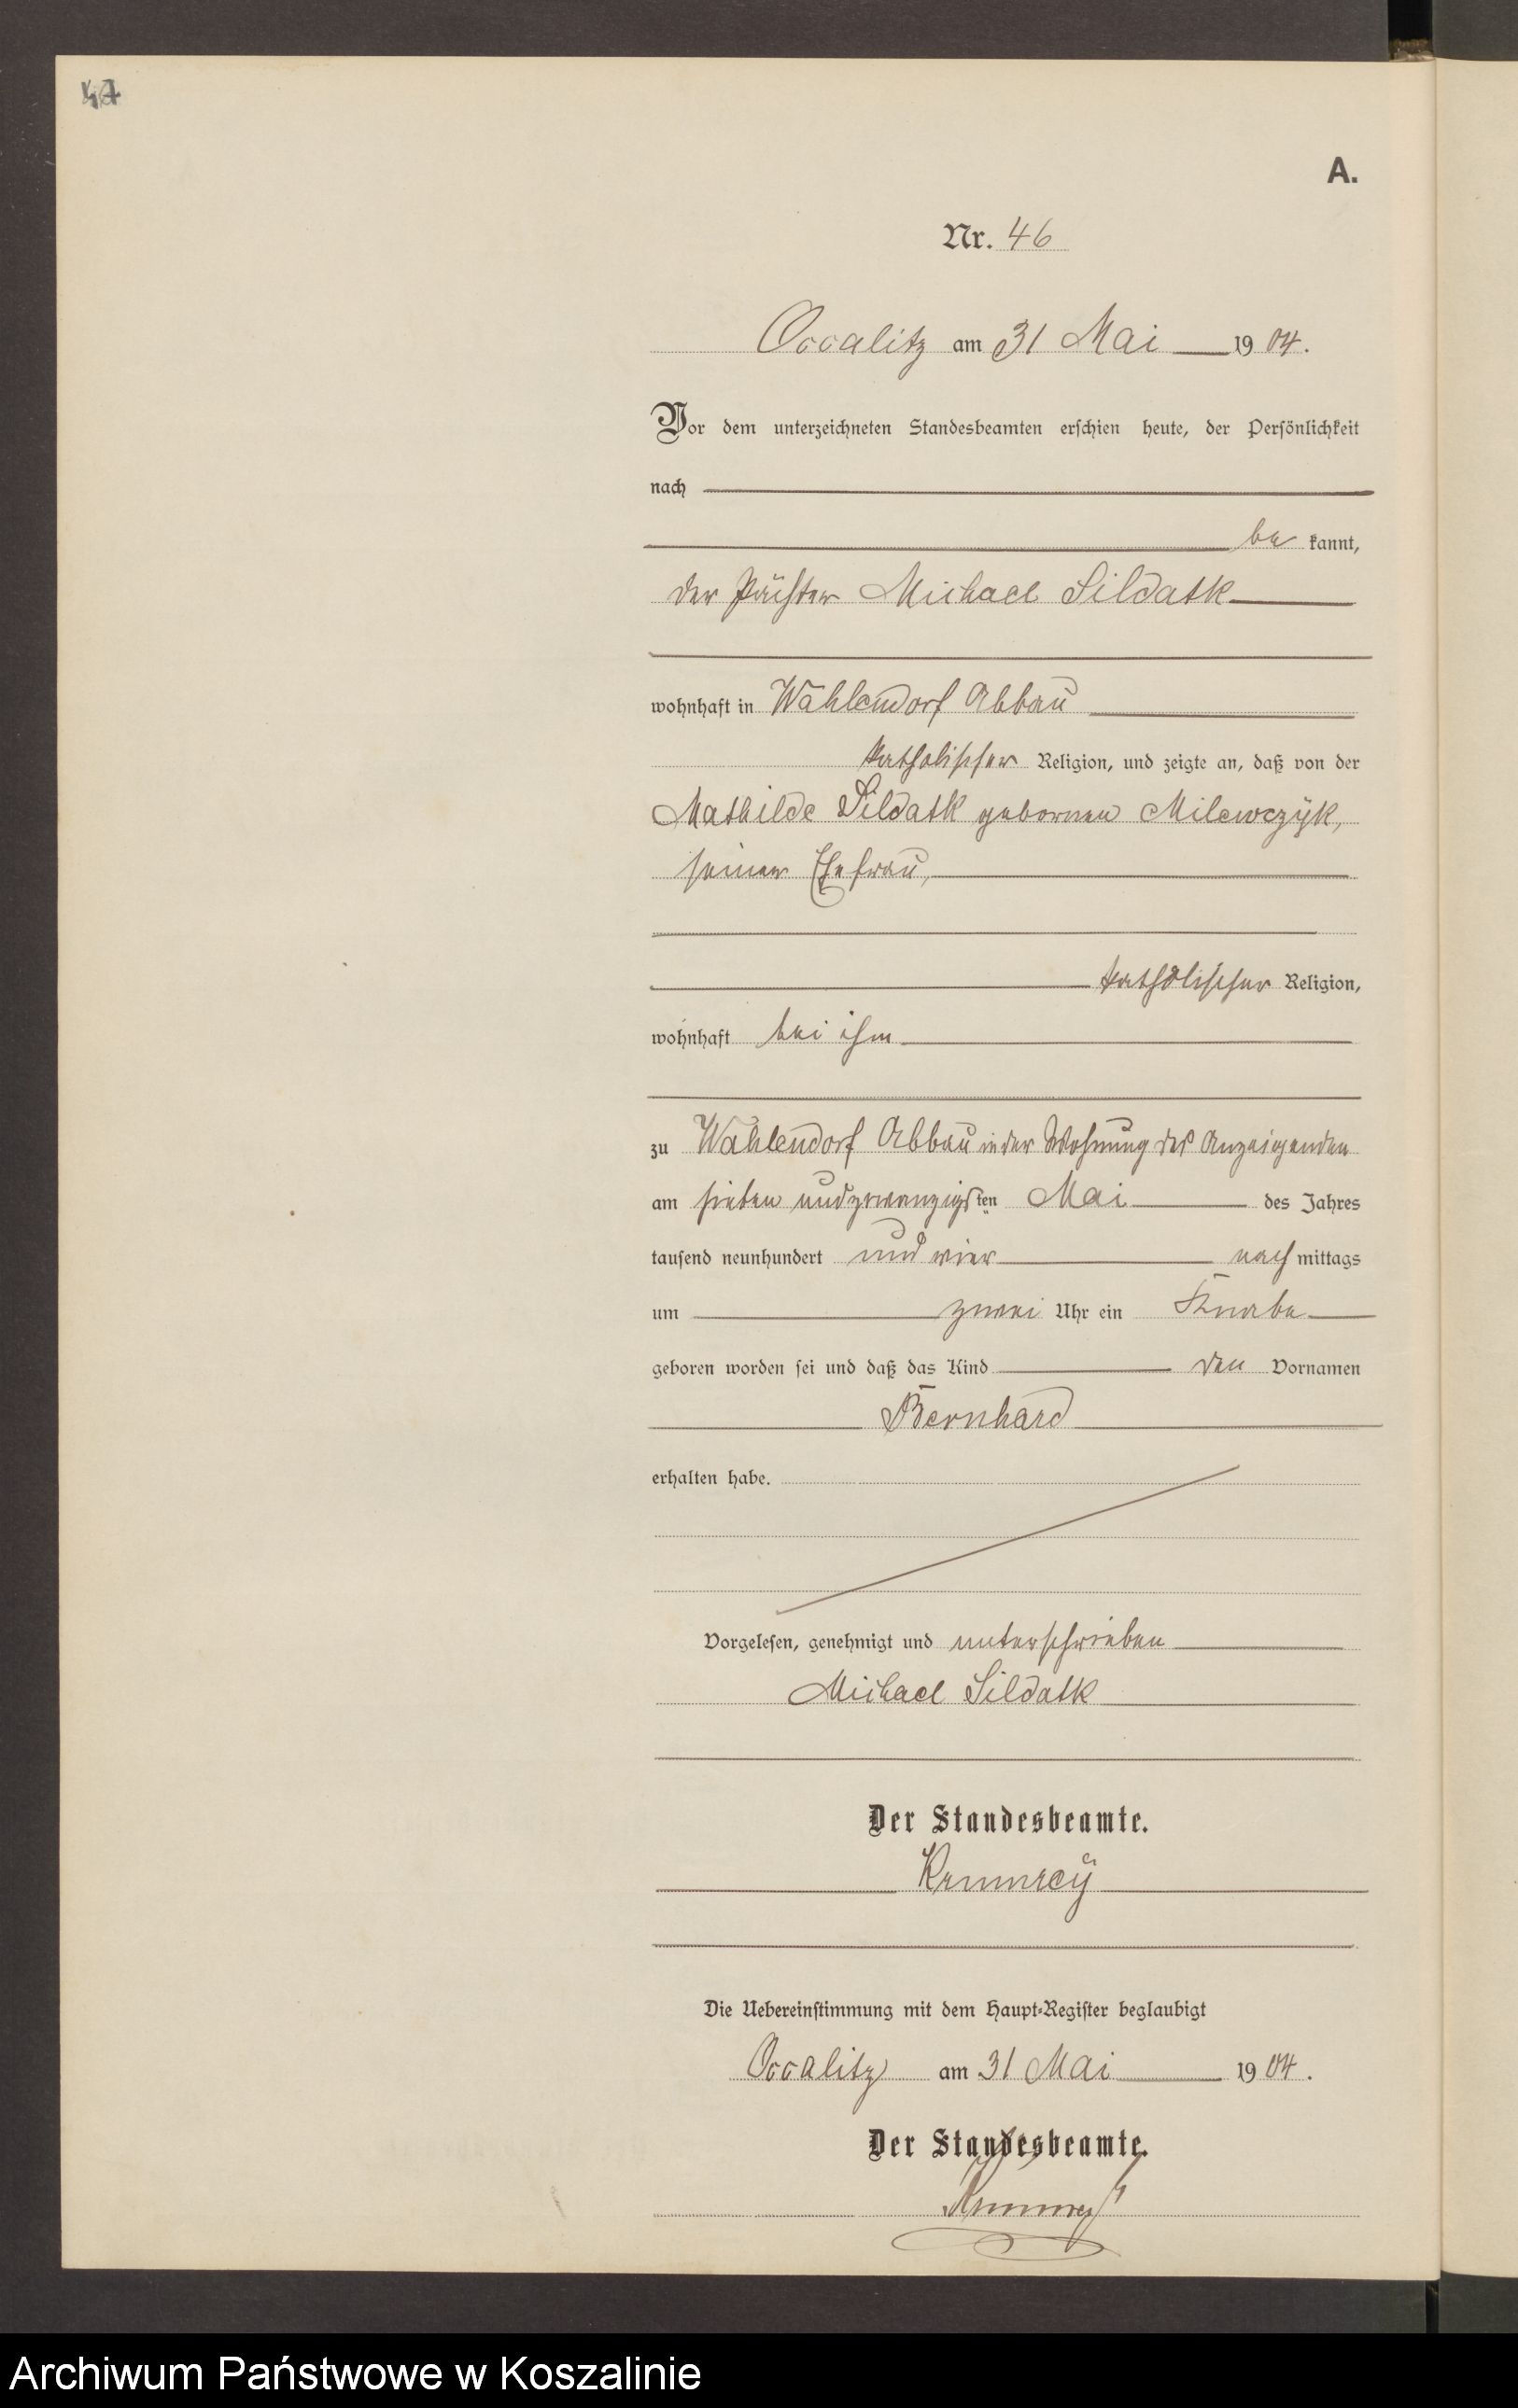 47
A.
Nr. 46
Occalitz am 31 Mai 19 04.
Vor dem unterzeichneten Standesbeamten erschien heute, der Persönlichkeit
nach
be kannt,
der Pächter Michael Sildatk
wohnhaft in Wahlendorf Abbau
katholischer Religion, und zeigte an, daß von der
Mathilde Sildatk gebornen Milewczyk,
seiner Ehefrau,
katholischer Religion,
wohnhaft bei ihm
zu Wahlendorf Abbau in der Wohnung des Anzeigenden
am sieben und zwanzigsten Mai des Jahres
tausend neunhundert und vier nach mittags
um zwei Uhr ein Knabe
geboren worden sei und daß das Kind den Vornamen
Bernhard
erhalten habe.
Vorgelesen, genehmigt und unterschrieben
Michael Sildatk
Der Standesbeamte.
Kummrey
Die Uebereinstimmung mit dem Haupt-Register beglaubigt
Occalitz am 31 Mai 19 04.
Der Standesbeamte.
Archiwum Państwowe w Koszalinie